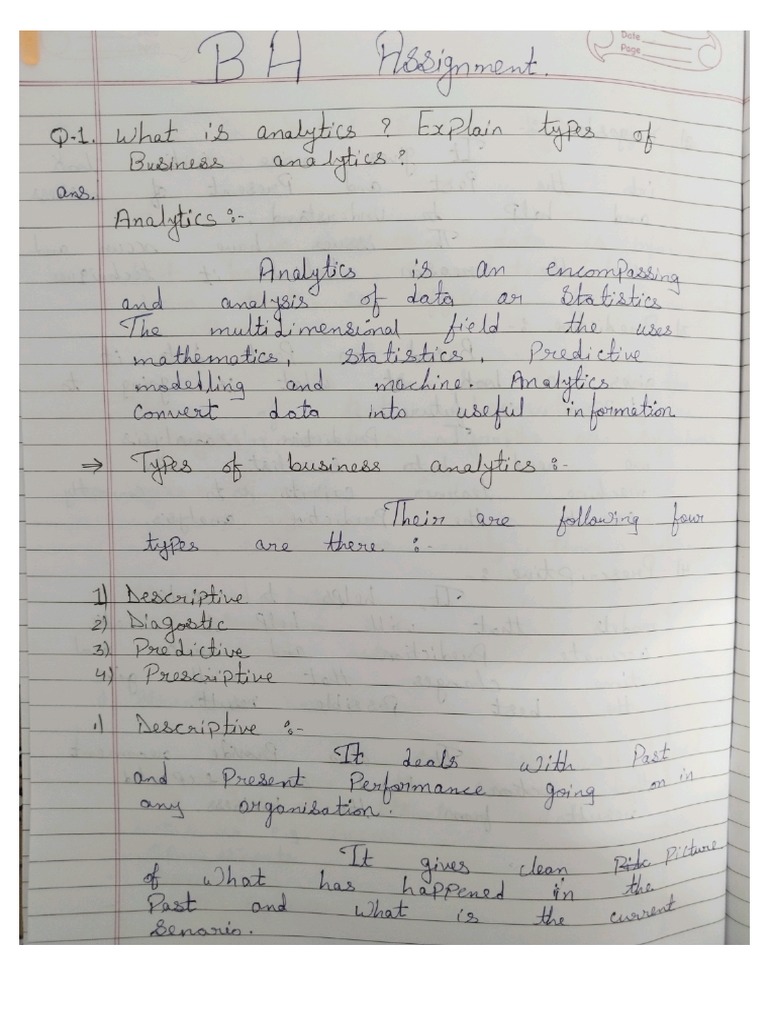 Date
Page
BA Assignment.
Q-1. What is analytics ? Explain types of
Business analytics ?
ans.
Analytics :-
Analytics is an encompassing
and analysis of data or Statistics
The multidimensional field the uses
mathematics, Statistics, Predictive
modelling and machine. Analytics
Convert data into useful information
⇒ Types of business analytics :-
Their are following four
types are there :-
1) Descriptive
2) Diagostic
3) Predictive
4) Prescriptive
1) Descriptive :-
It deals with Past
and Present Performance going on in
any organisation.
It gives clean Picture
of What has happened in the
Past and What is the current
Senario.